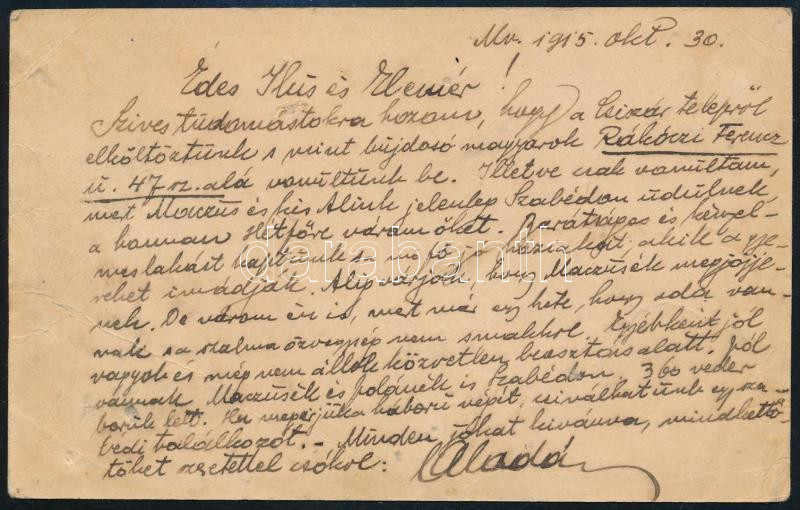 Mv. 1915. okt. 30.
Édes Ilus és Elemér!
Szives tudomástokra hozom, hogy a Csiszár telepről
elköltöztünk s mint bujdosó magyarok Rákóczi Ferencz
u. 47 sz. alá vonultunk be. Illetve csak vonultam,
mert Maczus és kis Alink jelenleg Szabédon üdülnek,
a honnan Hétfőre várom őket. Barátságos és kényel-
mes lakást kaptunk s a fő jó háziakat, akik a gye-
reket imádják. Alig várják, hogy Maczusék megjöjje-
nek. De várom én is, mert már egy hete, hogy oda van-
nak s a szalma özvegység nem smakkol. Egyébként jól
vagyok és még nem állok közvetlen beosztás alatt. Jól
vannak Maczusék és Jolánék is Szabédon. 360 veder
boruk lett. Ha megérjük a háború végét, csinálhatunk egy sza-
bédi találkozót. – Minden jókat kivánva, mindkettő-
töket szeretettel csókol: Aladár
darabanth